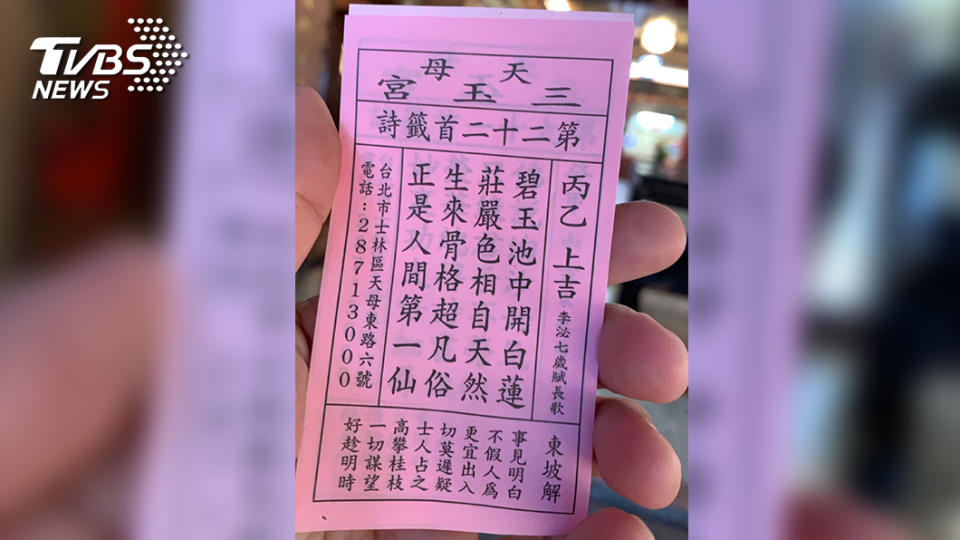 TVBS
NEWS
天母
三玉宮
第二十二首籤詩
丙乙 上吉 李泌七歲賦長歌
碧玉池中開白蓮
莊嚴色相自天然
生來骨格超凡俗
正是人間第一仙
台北市士林區天母東路六號
電話：28713000
東坡解
事見明白
不假人爲
更宜出入
切莫遲疑
士人占之
高攀桂枝
一切謀望
好趁明時